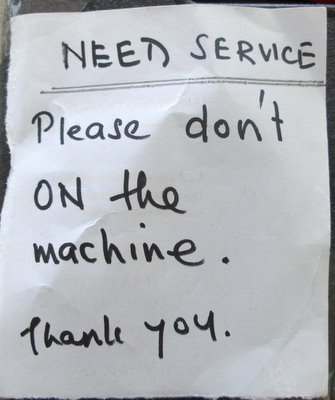 NEED SERVICE
Please don't
ON the
machine.
Thank you.